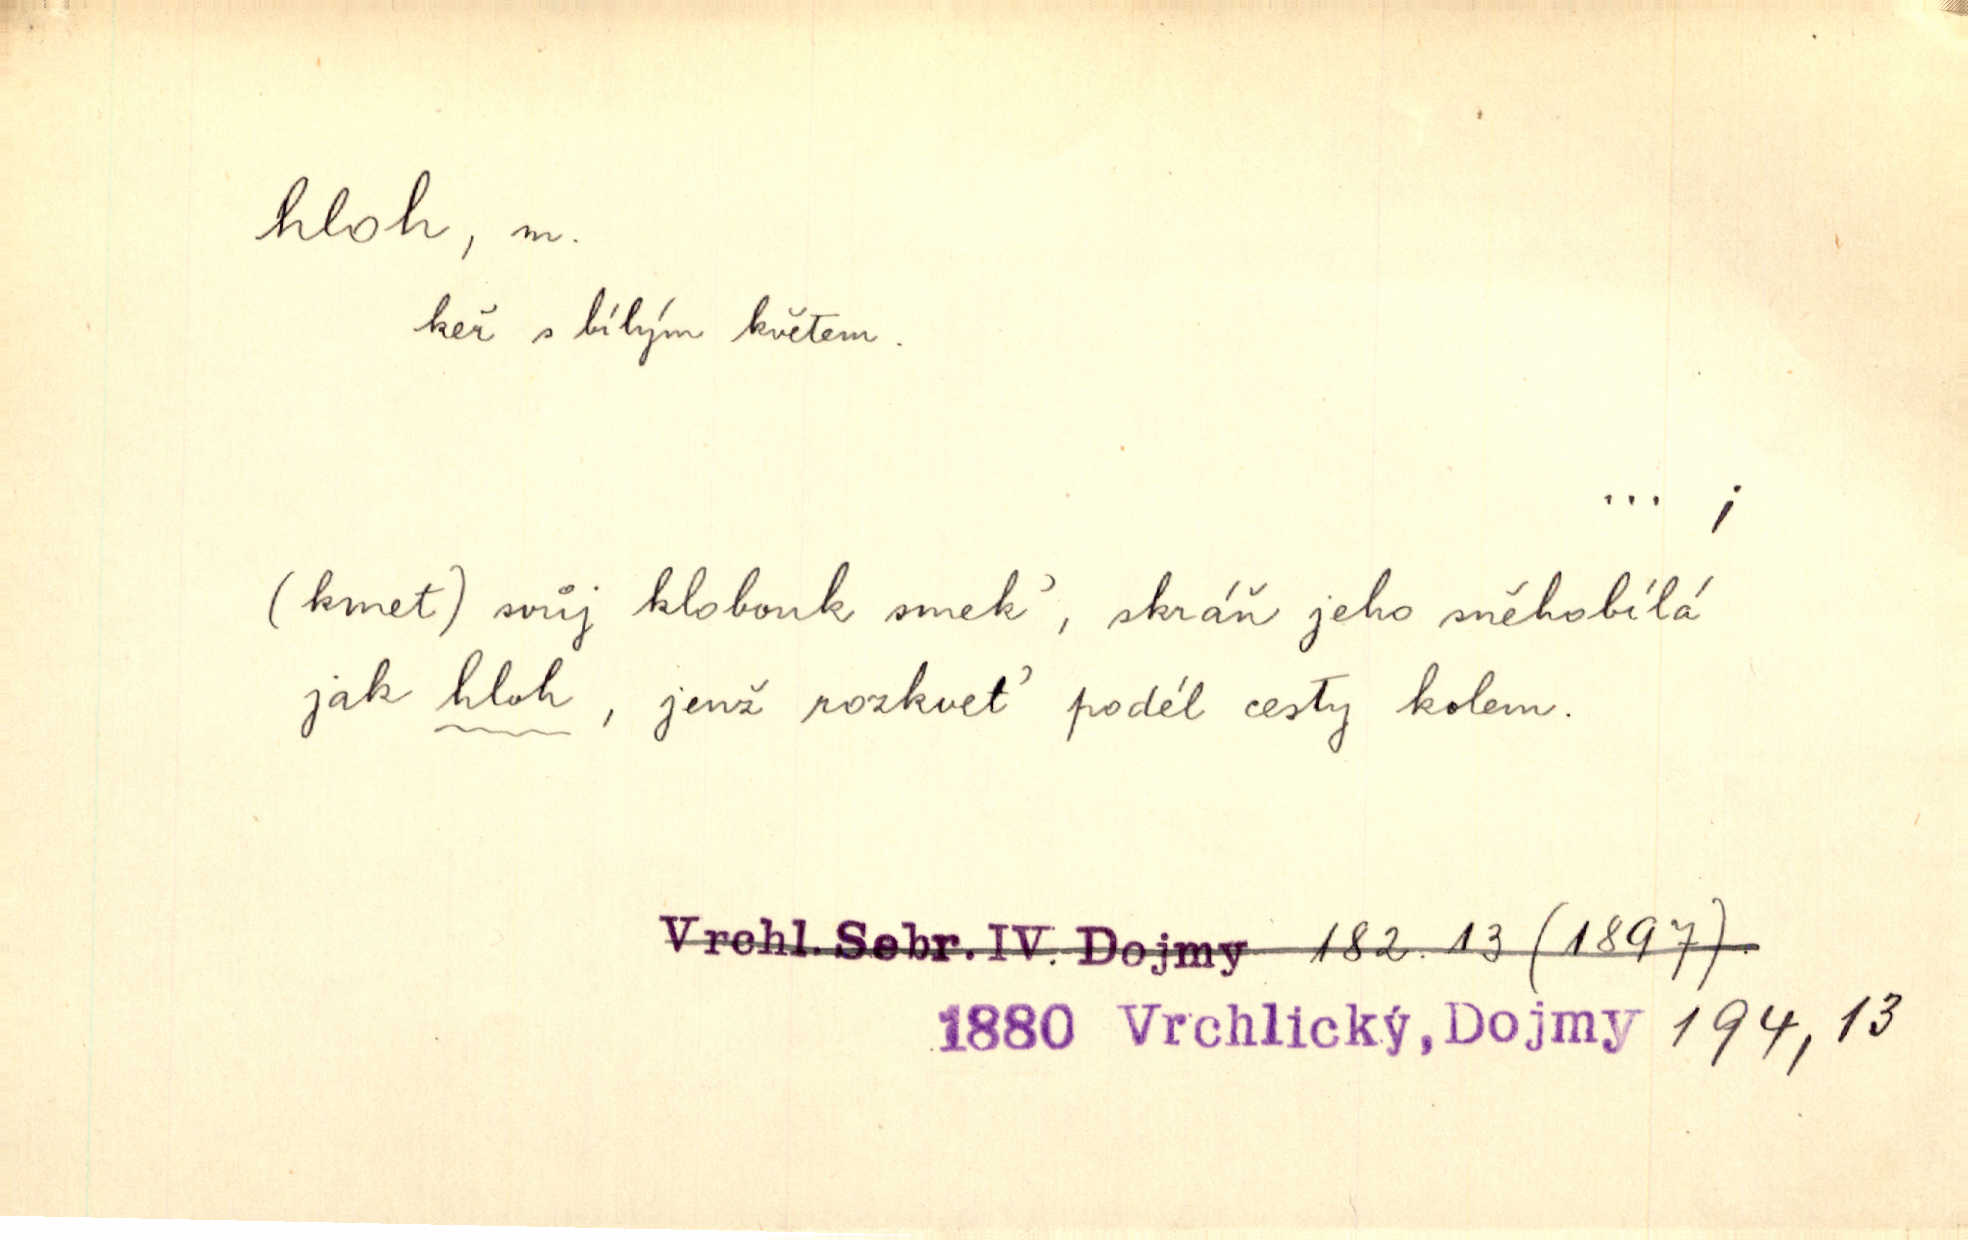 hloh, m.
keř s bílým květem.
... i
(kmet) svůj klobouk smek', skráň jeho sněhobílá
jak hloh, jenž rozkvet' podél cesty kolem.
Vrchl. Sebr. IV. Dojmy 182. 13 (1897).
1880 Vrchlický, Dojmy 194, 13